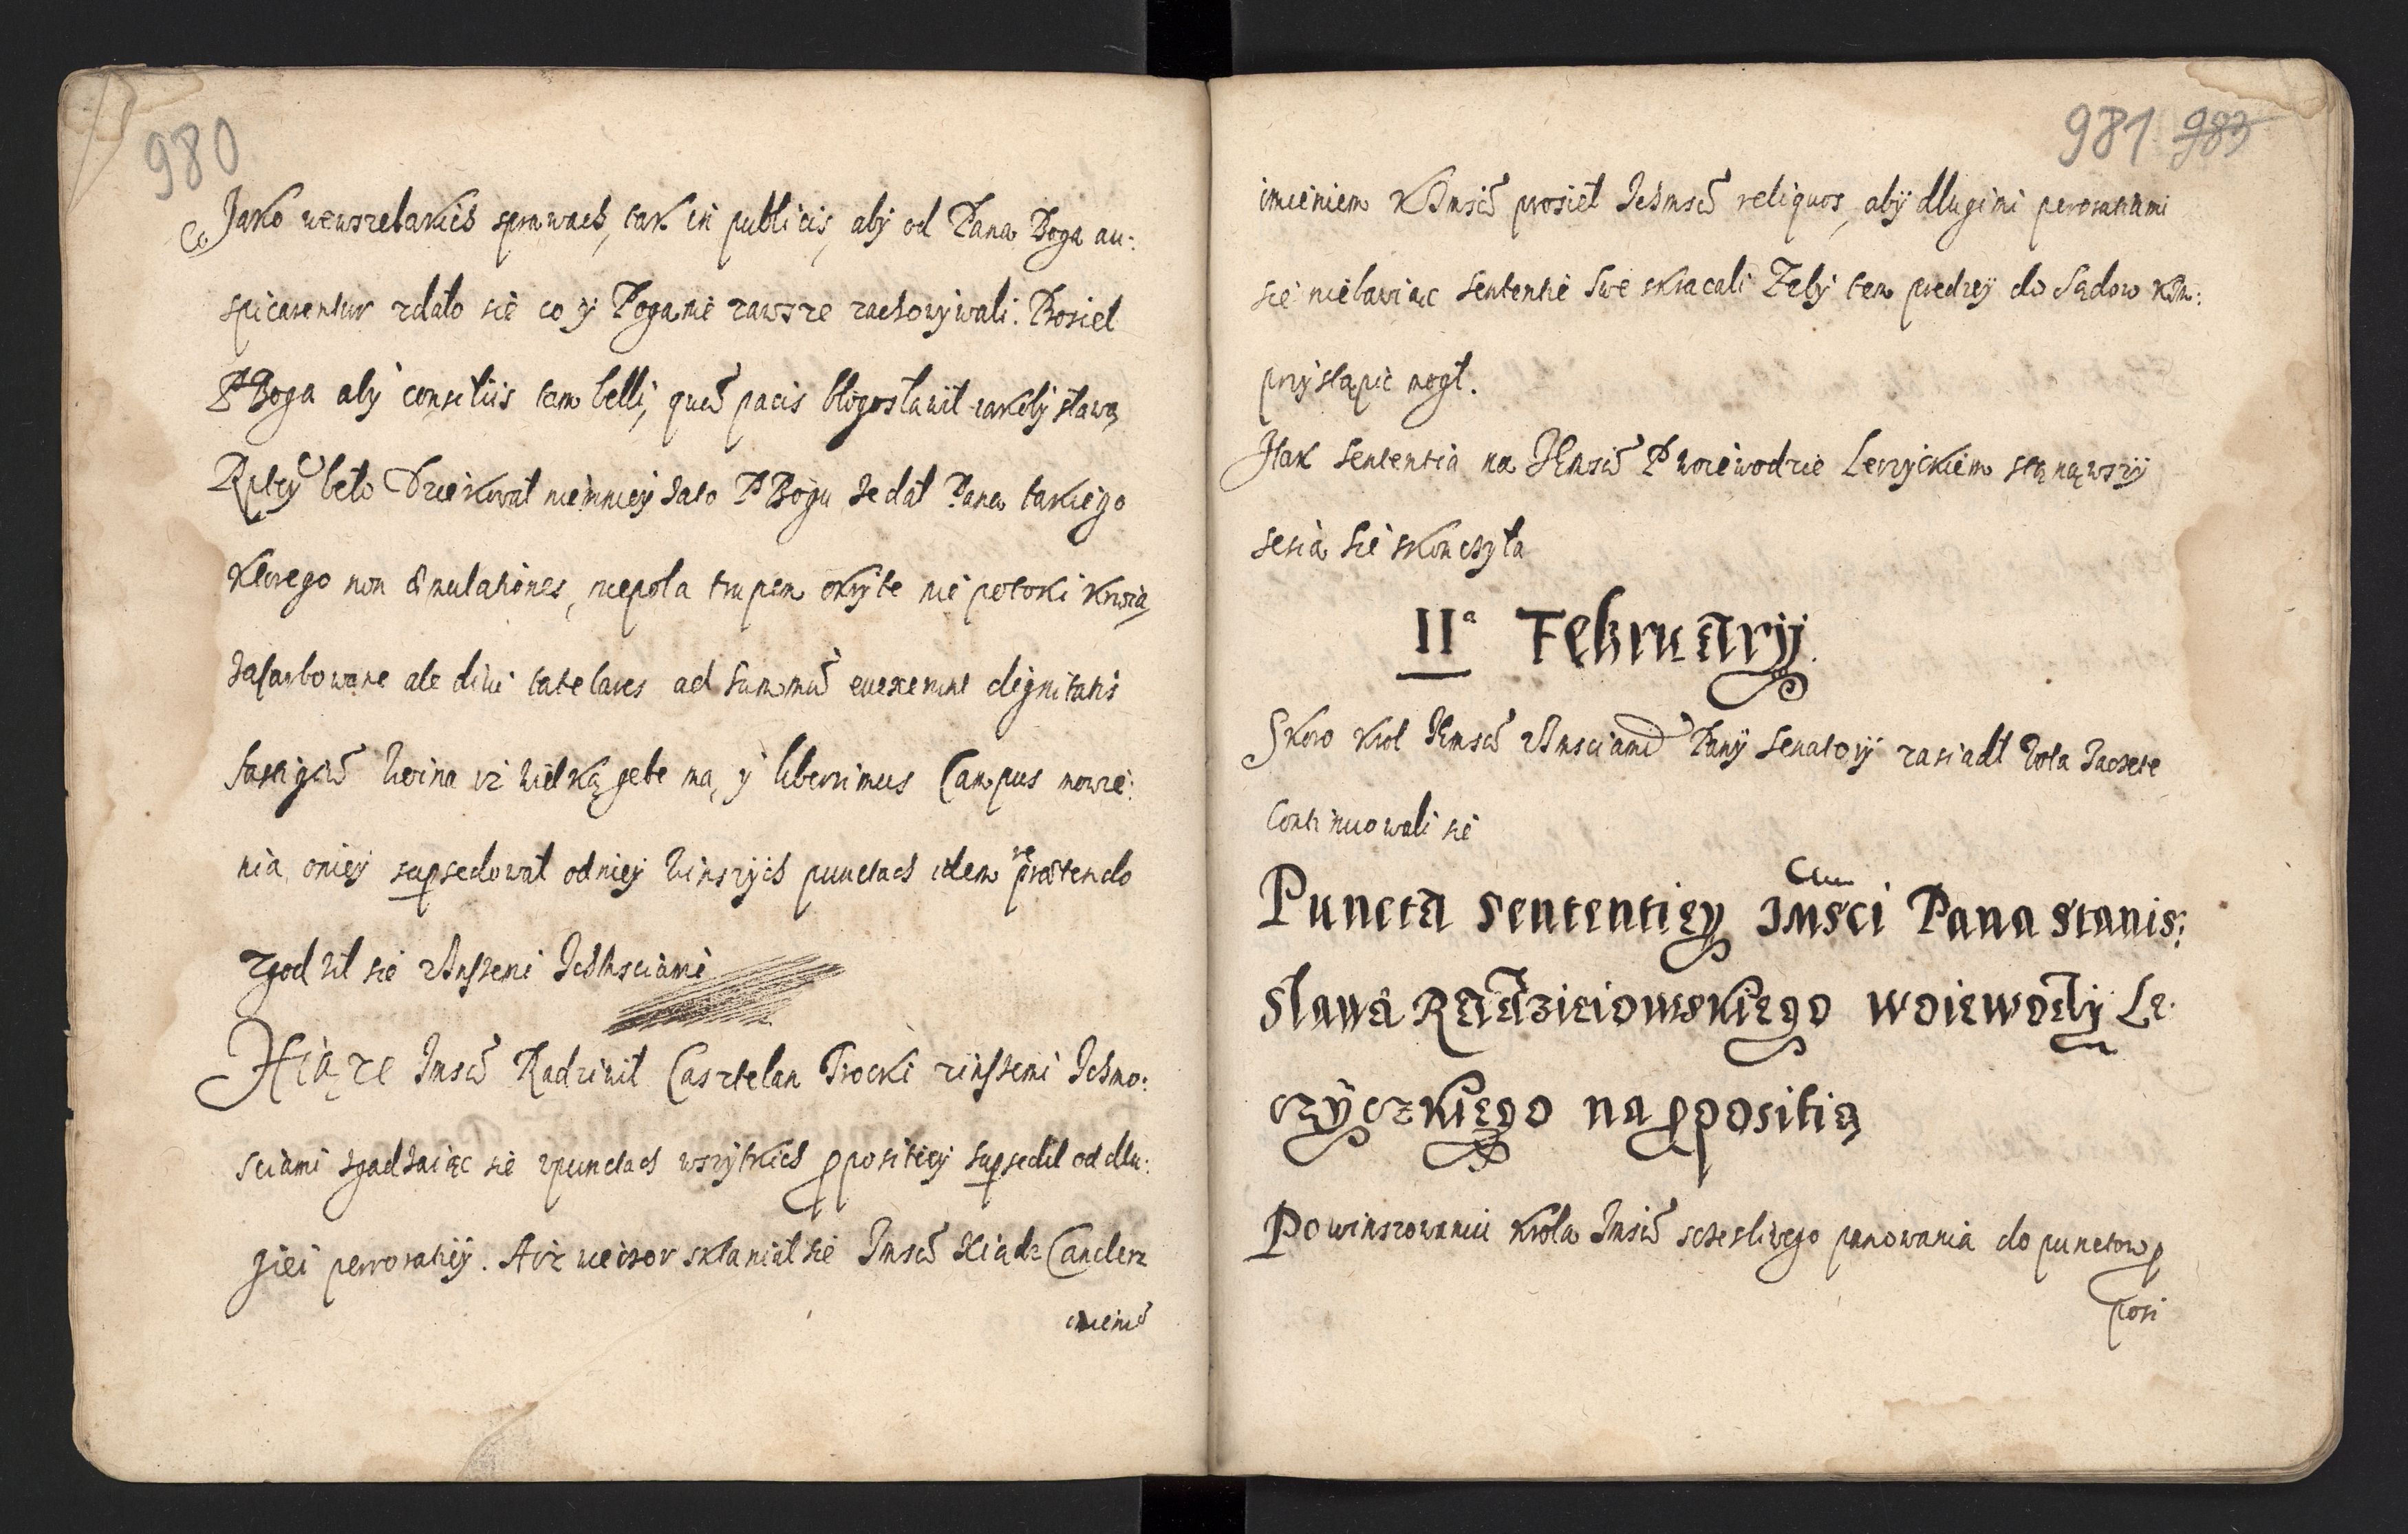 980
Jako wewszelakich sprawach, tak in publicis, aby od Pana Boga au:
spicarentur zdało sie co y Poganie zawsze zachowywali. Prosieł
PBoga aby consiliis tam belli, quã pacis błogosławił zakoby sławą
Rptey beło Dziekował niemniey zato PBogu że dał Pana takiego
ktorego non æmulationes, niepola trupem okryte nie potoki krwią
zafarbowane ale divi tutelares ad summũ evexerunt dignitatis
fastigiũ Woina iż wielką gebe ma, y liberrimus Campus mowie:
nia oniey supsedował odniey winszych punctach idem prætendo
zgodził sie zInszemi Ichmsciami
Xiąże Jmsć Radziwił Casztelan Trocki zinszemi Ichmo:
sciami zgadzaiąc sie zpunctach wszytkich ppositiey supsedił oddłu:
giei perroratiey. Aiż wieczor skłaniał sie Jmsć Xiadz Canclerz
imienie
981 983
imieniem KJmsci prosieł Ichmsć reliquos, aby długimi peroratiami
sie niebawiąc sententie swe skracali Zeby tem predzey do Sądow KJm:
przystąpic mogł.
Jtak sententia na JEmsci P woiewodzie Lerzyckiem stąnąwszy
sesia sie skonczyła
IIª Februarij
Skoro krol JEmsć zJmsciamĩ Pany Senatory zasiadł Vota
Continuowali sie
Puncta sententiey Jmsci Pana Stanis:
sława Radzieiowskiego woiewody Le:
czyczkiego na ppositią
Powinszowaniu krola Jmsci sczesliwego panowania do punctow p
posi